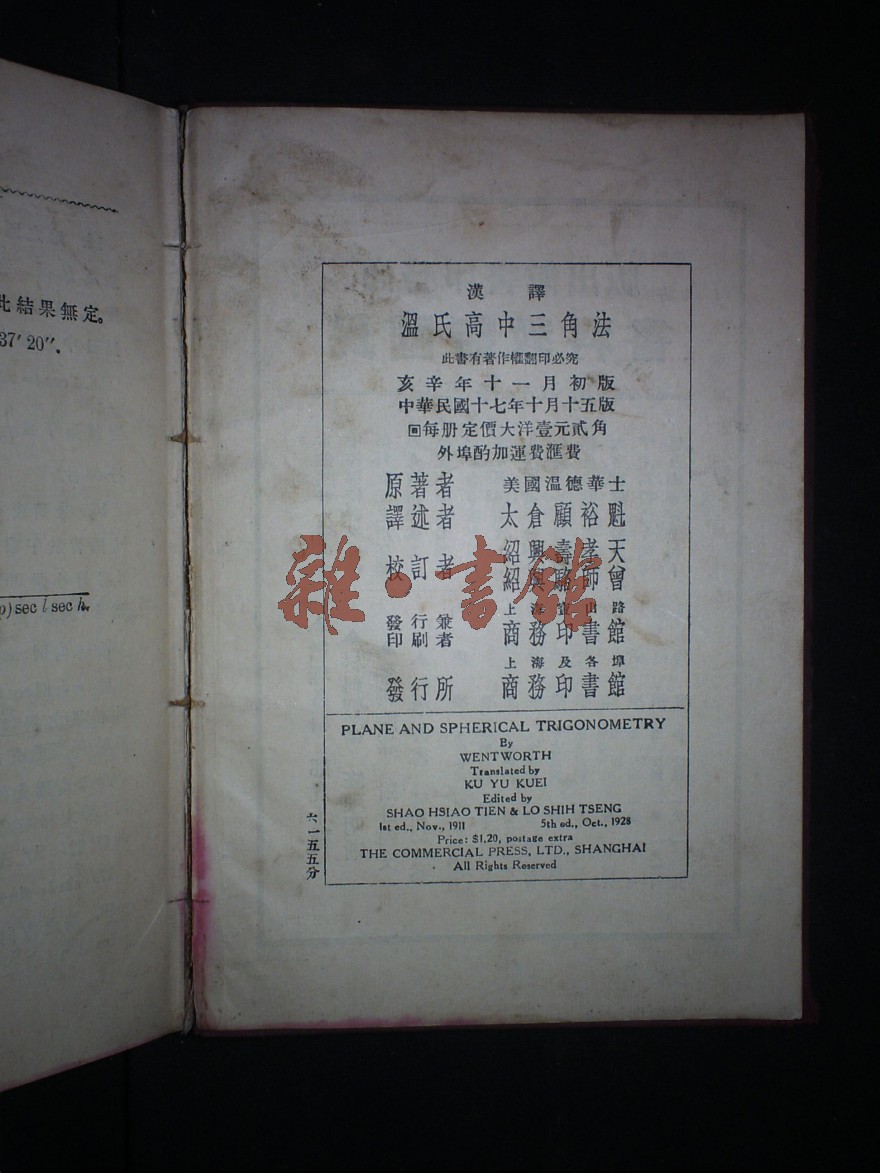 此結果無定。
37′ 20″.
p) sec l sec h.
漢譯
溫氏高中三角法
此書有著作權翻印必究
亥辛年十一月初版
中華民國十七年十月十五版
回每册定價大洋壹元貳角
外埠酌加運費滙費
原著者 美國溫德華士
譯述者 太倉顧裕魁
校訂者 紹興壽孝天
紹興駱師曾
發行兼印刷者 上海寶山路
商務印書館
發行所 上海及各埠
商務印書館
雜·書館
PLANE AND SPHERICAL TRIGONOMETRY
By
WENTWORTH
Translated by
KU YU KUEI
Edited by
SHAO HSIAO TIEN & LO SHIH TSENG
1st ed., Nov., 1911 5th ed., Oct., 1928
Price: $1.20, postage extra
THE COMMERCIAL PRESS, LTD., SHANGHAI
All Rights Reserved
六一五五分